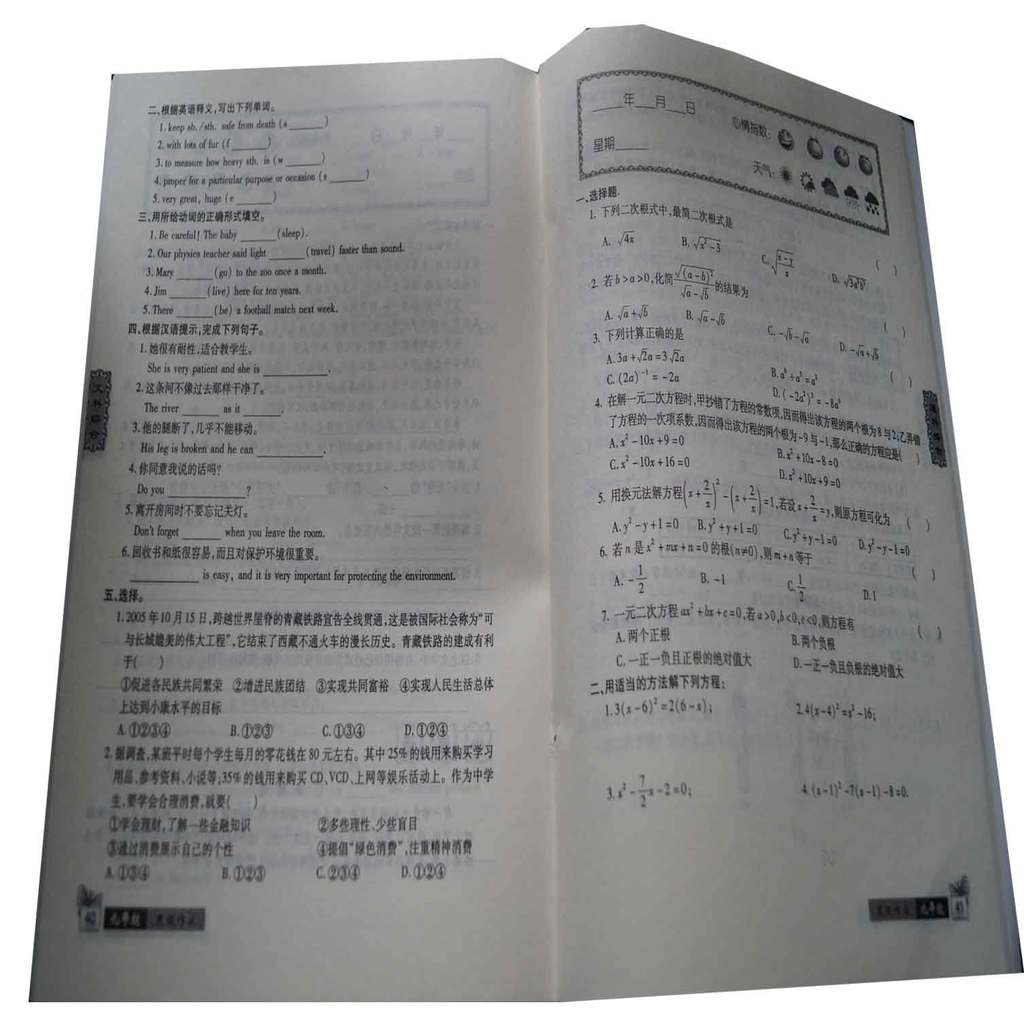 二、根据英语释义,写出下列单词。
1. keep sb. /sth. safe from death (a ______)
2. with lots of fur (f ______)
3. to measure how heavy sth. is (w ______)
4. proper for a particular purpose or occasion (s ______)
5. very great, huge (e ______)
三、用所给动词的正确形式填空。
1. Be careful! The baby ______ (sleep).
2. Our physics teacher said light ______ (travel) faster than sound.
3. Mary ______ (go) to the zoo once a month.
4. Jim ______ (live) here for ten years.
5. There ______ (be) a football match next week.
四、根据汉语提示,完成下列句子。
1. 她很有耐性,适合教学生。
She is very patient and she is ______.
2. 这条河不像过去那样干净了。
The river ______ as it ______.
3. 他的腿断了,几乎不能移动。
His leg is broken and he can ______.
4. 你同意我说的话吗?
Do you ______?
5. 离开房间时不要忘记关灯。
Don't forget ______ when you leave the room.
6. 回收书和纸很容易,而且对保护环境很重要。
______ is easy, and it is very important for protecting the environment.
五、选择。
1. 2005年10月15日,跨越世界屋脊的青藏铁路宣告全线贯通,这是被国际社会称为“可
与长城媲美的伟大工程”,它结束了西藏不通火车的漫长历史。青藏铁路的建成有利
于( )
①促进各民族共同繁荣 ②增进民族团结 ③实现共同富裕 ④实现人民生活总体
上达到小康水平的目标
A. ①②③④ B. ①②③ C. ①③④ D. ①②④
2. 据调查,某班平时每个学生每月的零花钱在80元左右。其中25%的钱用来购买学习
用品、参考资料、小说等,35%的钱用来购买CD、VCD、上网等娱乐活动上。作为中学
生,要学会合理消费,就要( )
①学会理财,了解一些金融知识 ②多些理性、少些盲目
③通过消费展示自己的个性 ④提倡“绿色消费”,注重精神消费
A. ①③④ B. ①②③ C. ②③④ D. ①②④
九年级
____年____月____日
心情指数:
星期____
天气:
一、选择题.
1. 下列二次根式中,最简二次根式是 ( )
A. √4x B. √(x²-3) C. √((x-y)/x) D. √(3a²b)
2. 若b>a>0,化简√(a-b)²/(√a-√b)的结果为 ( )
A. √a+√b B. √a-√b C. -√b-√a D. -√a+√b
3. 下列计算正确的是 ( )
A. 3a+√2a=3√2a B. a⁶÷a³=a²
C. (2a)⁻¹=-2a D. (-2a²)³=-8a⁶
4. 在解一元二次方程时,甲抄错了方程的常数项,因而得出该方程的两个根为8与2;乙弄错
了方程的一次项系数,因而得出该方程的两个根为-9与-1,那么正确的方程应是( )
A. x²-10x+9=0 B. x²+10x-8=0
C. x²-10x+16=0 D. x²+10x+9=0
5. 用换元法解方程(x+2/x)²-(x+2/x)=1,若设x+2/x=y,则原方程可化为 ( )
A. y²-y+1=0 B. y²+y+1=0 C. y²+y-1=0 D. y²-y-1=0
6. 若n是x²+mx+n=0的根(n≠0),则m+n等于 ( )
A. -1/2 B. -1 C. 1/2 D. 1
7. 一元二次方程ax²+bx+c=0,若a>0,b<0,c<0,则方程有 ( )
A. 两个正根 B. 两个负根
C. 一正一负且正根的绝对值大 D. 一正一负且负根的绝对值大
二、用适当的方法解下列方程:
1. 3(x-6)²=2(6-x); 2. 4(x-4)²=x²-16;
3. x²-7/2x-2=0; 4. (x-1)²-7(x-1)-8=0.
九年级